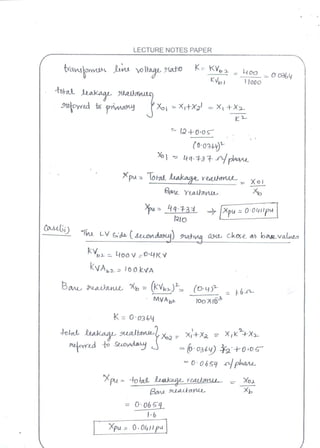 LECTURE NOTES PAPER
transformer line voltage ratio K = KVb2 / KVb1 = 400 / 11000 = 0.0364
total leakage reactance referred to primary } X01 = X1 + X2' = X1 + X2 / K²
= 12 + 0.05 / (0.0364)²
X01 = 49.737 Ω/phase
Xpu = Total leakage reactance / Base reactance = X01 / Xb
Xpu = 49.737 / 1210 → Xpu = 0.0411 pu
Case(ii) The LV side (secondary) rating are chose as base values
kVb2 = 400 V = 0.4 KV
kVAb2 = 100 kVA
Base reactance Xb = (KVb2)² / MVAb2 = (0.4)² / 100×10³ = 1.6 Ω
K = 0.0364
total leakage reactance referred to secondary } X02 = X1' + X2 = X1K² + X2
= (0.0364)² 12 + 0.05
= 0.0659 Ω/phase
Xpu = total leakage reactance / Base reactance = X02 / Xb
= 0.0659 / 1.6
Xpu = 0.0411 pu